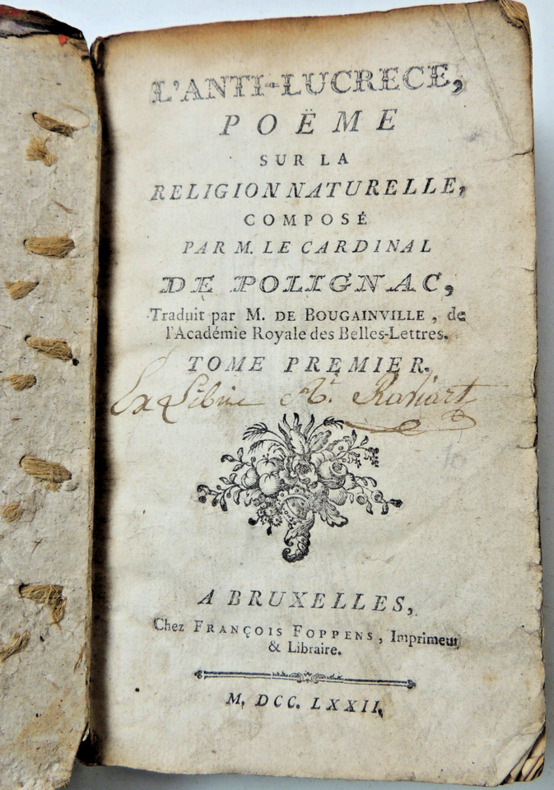 L'ANTI-LUCRECE,
POËME
SUR LA
RELIGION NATURELLE,
COMPOSÉ
PAR M. LE CARDINAL
DE POLIGNAC,
Traduit par M. DE BOUGAINVILLE, de
l'Académie Royale des Belles-Lettres.
TOME PREMIER.
Ex Libris
A BRUXELLES,
Chez FRANÇOIS FOPPENS, Imprimeur
& Libraire.
M. DCC. LXXII.